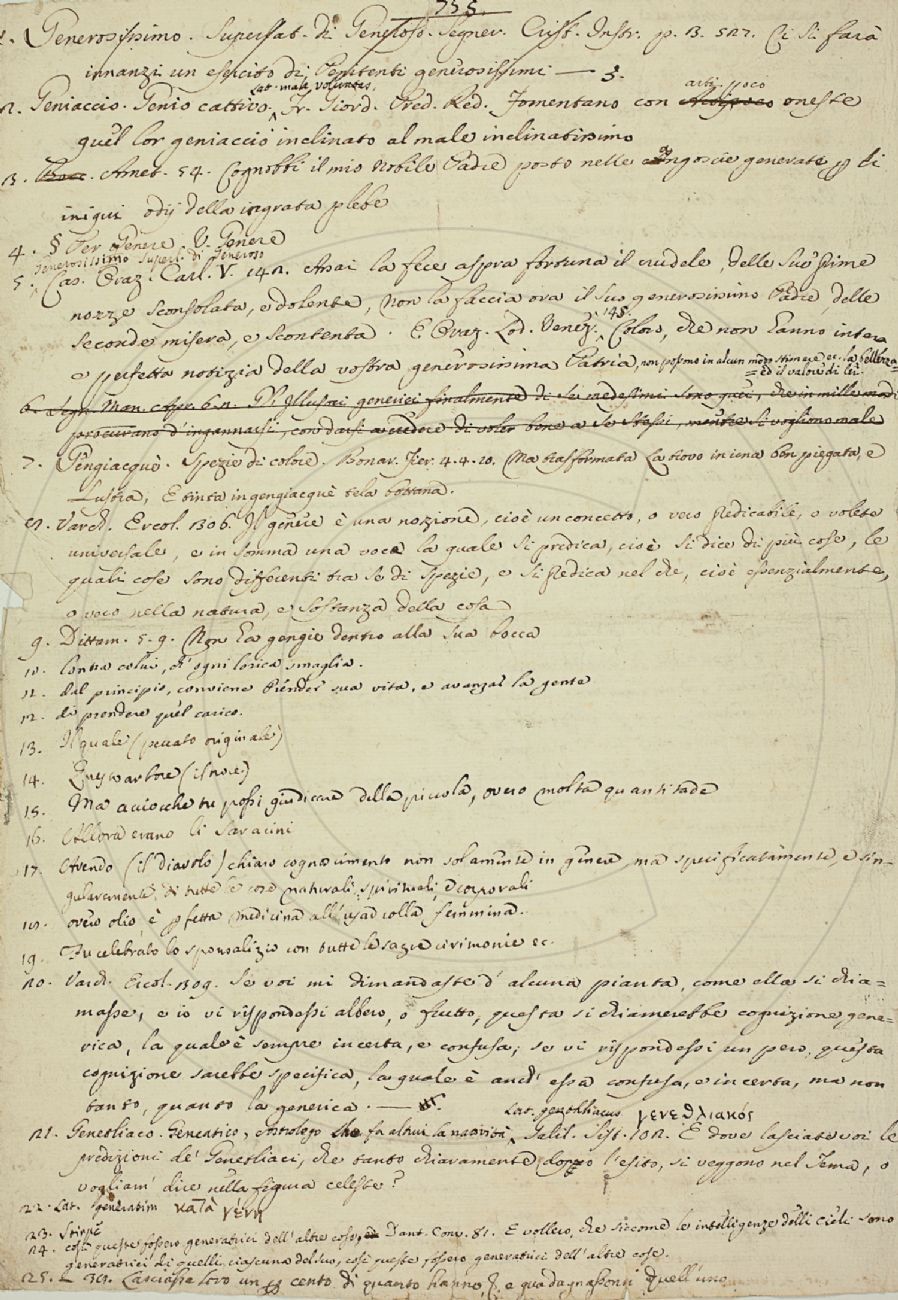 735.
1. Generosissimo. Superlat. di Generoso. Segner. Crist. Instr. p. 13. 527. Ci si farà
innanzi un esercito di Penitenti generosissimi — 5.
Lat. mala voluntas. arti poco
2. Geniaccio. Genio cattivo. Fr. Giord. Pred. Red. Fomentano con oneste
quel lor geniaccio inclinato al male inclinatissimo
3. Amet. 54. Cognobbi il mio nobile Padre posto nelle Angoscie generate p li
iniqui odij della ingrata plebe
4. § Per Genere V. Genere
Generosissimo Superl. di Generoso
5. Cas. Oraz. Carl. V. 142. Assai la fece aspra fortuna il crudele, delle sue prime
nozze sconsolata, e dolente, non la faccia ora il suo generosissimo Padre delle
145.
seconde misera, e scontenta. E Oraz. Lod. Venez. Coloro, che non hanno intera
e perfetta notizia della vostra generosissima Patria, non possono in alcun modo stimare ec. la bellezza
ed il valore di lei.
6. Segn. Man. Apr. 6. 2. Gl' Illusi generici finalmente di se medesimi sono quei, che in mille modi
procurano d'ingannarsi, con darsi a credere di voler bene a se stessi, mentre si vogliono male
7. Gengiacquè. Spezie di colore. Bonar. Fier. 4. 4. 20. Ma trasformata la trovo in una ben piegata, e
Lustra, E tinta in gengiacquè tela bottana.
8. Varch. Ercol. 306. Il genere è una nozione, cioè un concetto, o vero predicabile, o volete
universale, e in somma una voce la quale si predica, cioè si dice di più cose, le
quali cose sono differenti tra se di spezie, e si predica nel che, cioè essenzialmente,
o vero nella natura, e sostanza della cosa
9. Dittam. 5. 9. Non ha gengie dentro alla sua bocca
10. Contra colui, ch' ogni lorica smaglia.
11. dal principio, conviene prender sua vita, e avanzar la gente
12. di prendere quel carico.
13. Il quale (peccato originale)
14. Quest' arbore (il noce)
15. Ma acciocche tu possi giudicare della piccola, overo molta quantitade
16. Allora erano li Saracini
17. Avendo (il diavolo) chiaro cognoscimento non solamente in genere, ma specificatamente, e sin=
gularemente, di tutte le cose naturali, spirituali, e corporali
18. overo olio, è pfetta medicina all' usar colla femmina.
19. Fu celebrato lo sponsalizio con tutte le sagre cirimonie ec.
20. Varch. Ercol. 309. Se voi mi dimandaste d' alcuna pianta, come ella si chia=
masse, e io vi rispondessi albero, o frutto, questa si chiamerebbe cognizione gene=
rica, la quale è sempre incerta, e confusa; se vi rispondessi un pero, questa
cognizione sarebbe specifica, la quale è anch' essa confusa, e incerta, ma non
tanto, quanto la generica. —
Lat. genethliacus γενεθλιακός
21. Genetliaco. Geneatico, Astrologo che fa altrui la natività. Galil. Sist. 102. E dove lasciate voi le
predizioni de' Genetliaci, che tanto chiaramente doppo l'esito, si veggono nel Tema, o
vogliam' dire nella figura celeste?
22. Lat. generatim κατὰ γένη
23. Stirpe
24. così queste fossero generatrici dell' altre cose, Dant. Conv. 81. E vollero, che siccome le intelligenze delli cieli sono
generatrici di quelli, ciascuna del suo, così queste fossero generatrici dell' altre cose.
25. L 39. Lasciassa loro un p cento di quanto hanno, e guadagnassonsi quell' uno